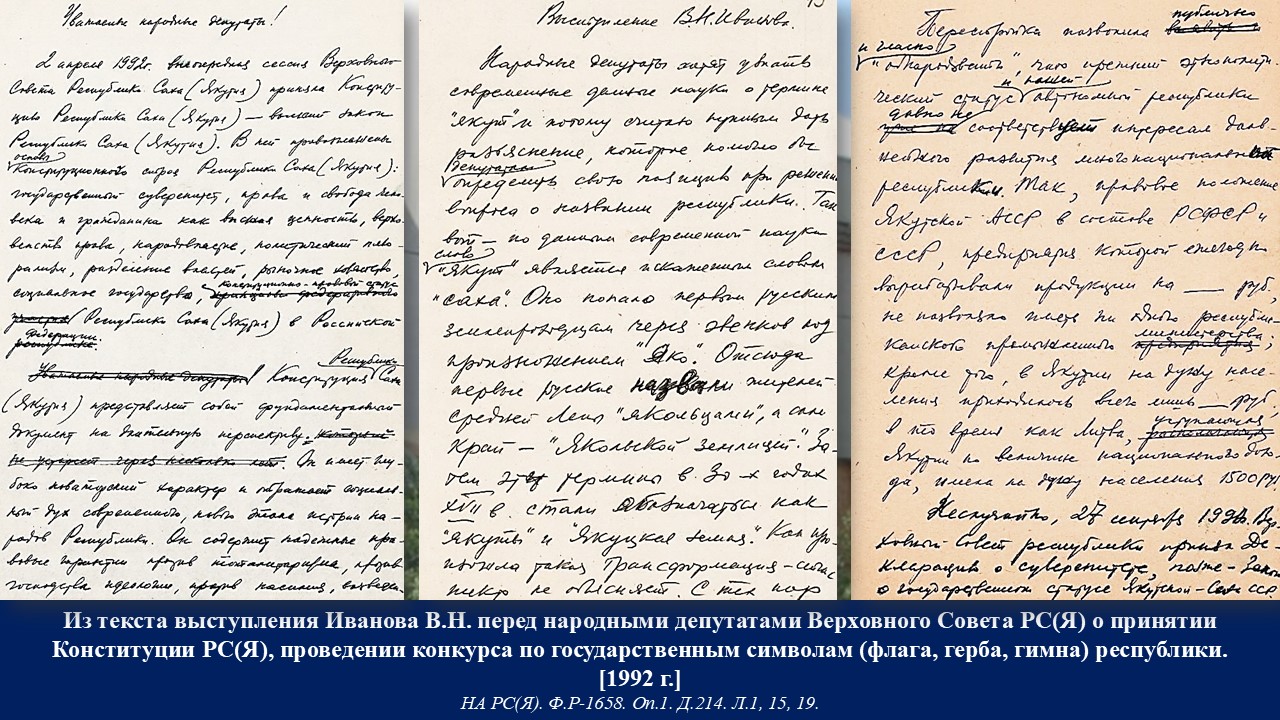 Уважаемые народные депутаты!
2 апреля 1992г. внеочередная сессия Верховного
Совета Республики Саха (Якутия) приняла Консти‑
цию Республики Саха (Якутия) — основной закон
Республики Саха (Якутия). В ней провозглашены
основы
конституционного строя Республики Саха (Якутия):
государственный суверенитет, права и свобода чело-
века и гражданина как высшая ценность, верхо-
венство права, народовластие, политический плю-
рализм, разделение властей, рыночное хозяйство,
конституционно-правовой статус
социальное государство,
Республики Саха (Якутия) в Российской
Федерации.
Уважаемые народные депутаты! Конституция Республики Саха
(Якутия) представляет собой фундаментальный
документ на длительную перспективу, который
не умрет через несколько лет. Он имеет глу-
боко новаторский характер и отражает социаль-
ный дух современного, нового этапа истории на-
родов Республики. Он содержит надежные пра-
вовые гарантии против тоталитаризма, против
господства идеологии, против насилия,
Выступление В.Н.Иванова.
15
Народные депутаты хотят узнать
современные данные науки о термине
"якут" и потому считаю нужным дать
разъяснение, которое помогло бы
депутатам
определить свою позицию при решении
вопроса о названии республики. Так
вот – по данным современной науки
слово
"якут" является искаженным словом
"саха". Оно попало первым русским
землепроходцам через эвенков под
произношением "Яко". Отсюда
первые русские назвали жителей
средней Лены "якольцами", а сам
край – "Якольской землицей". За-
тем эти термины в 30-х годах
XVII в. стали обозначаться как
"якуты" и "Якуцкая земля". Как про-
изошла такая трансформация – сейчас
никто не объяснит. С тех пор
Перестройка позволила публично
и гласно
"обнародовать", что прежний этнополити-
ческий статус и нашей автономной республики
давно не
соответствует интересам даль-
нейшего развития многонациональной
республики. Так, правовое положение
Якутской АССР в составе РСФСР и
СССР, предприятия которой ежегодно
вырабатывали продукции на ___ руб.
не позволило иметь ни одного республи-
министерства
канского промышленного предприятия;
кроме того, в Якутии на душу насе-
ления приходилось всего лишь ___ руб,
уступающая
в то время как Литва,
Якутии по величине национального дохо-
да, имела на душу населения 1500 руб.
Неслучайно, 27 сентября 1990. Вер-
ховный Совет республики принял Де-
кларацию о суверенитете,
о государственном статусе Якутской-Саха ССР.
Из текста выступления Иванова В.Н. перед народными депутатами Верховного Совета РС(Я) о принятии
Конституции РС(Я), проведении конкурса по государственным символам (флага, герба, гимна) республики.
[1992 г.]
НА РС(Я). Ф.Р-1658. Оп.1. Д.214. Л.1, 15, 19.